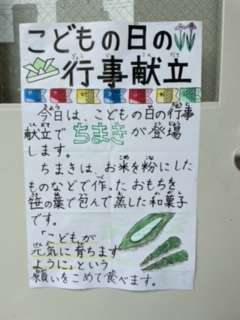 こどもの日の
行事献立
今日は、こどもの日の行事
献立で ちまき が登場
します。
ちまきは、お米を粉にした
ものなどで作ったおもちを
笹の葉で包んで蒸した和菓子
です。
「こどもが
元気に育ちます
ように」という
願いをこめて食べます。